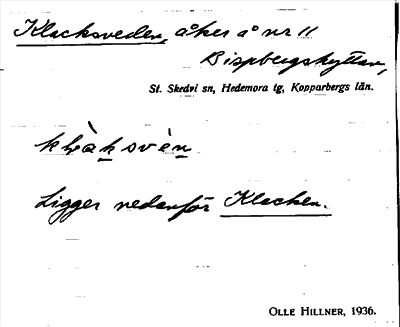 Klacksveden, åker å nr 11
Bispbergshyttan,
St. Skedvi sn, Hedemora tg, Kopparbergs län.
klàksvèn
Ligger nedanför Klacken.
OLLE HILLNER, 1936.